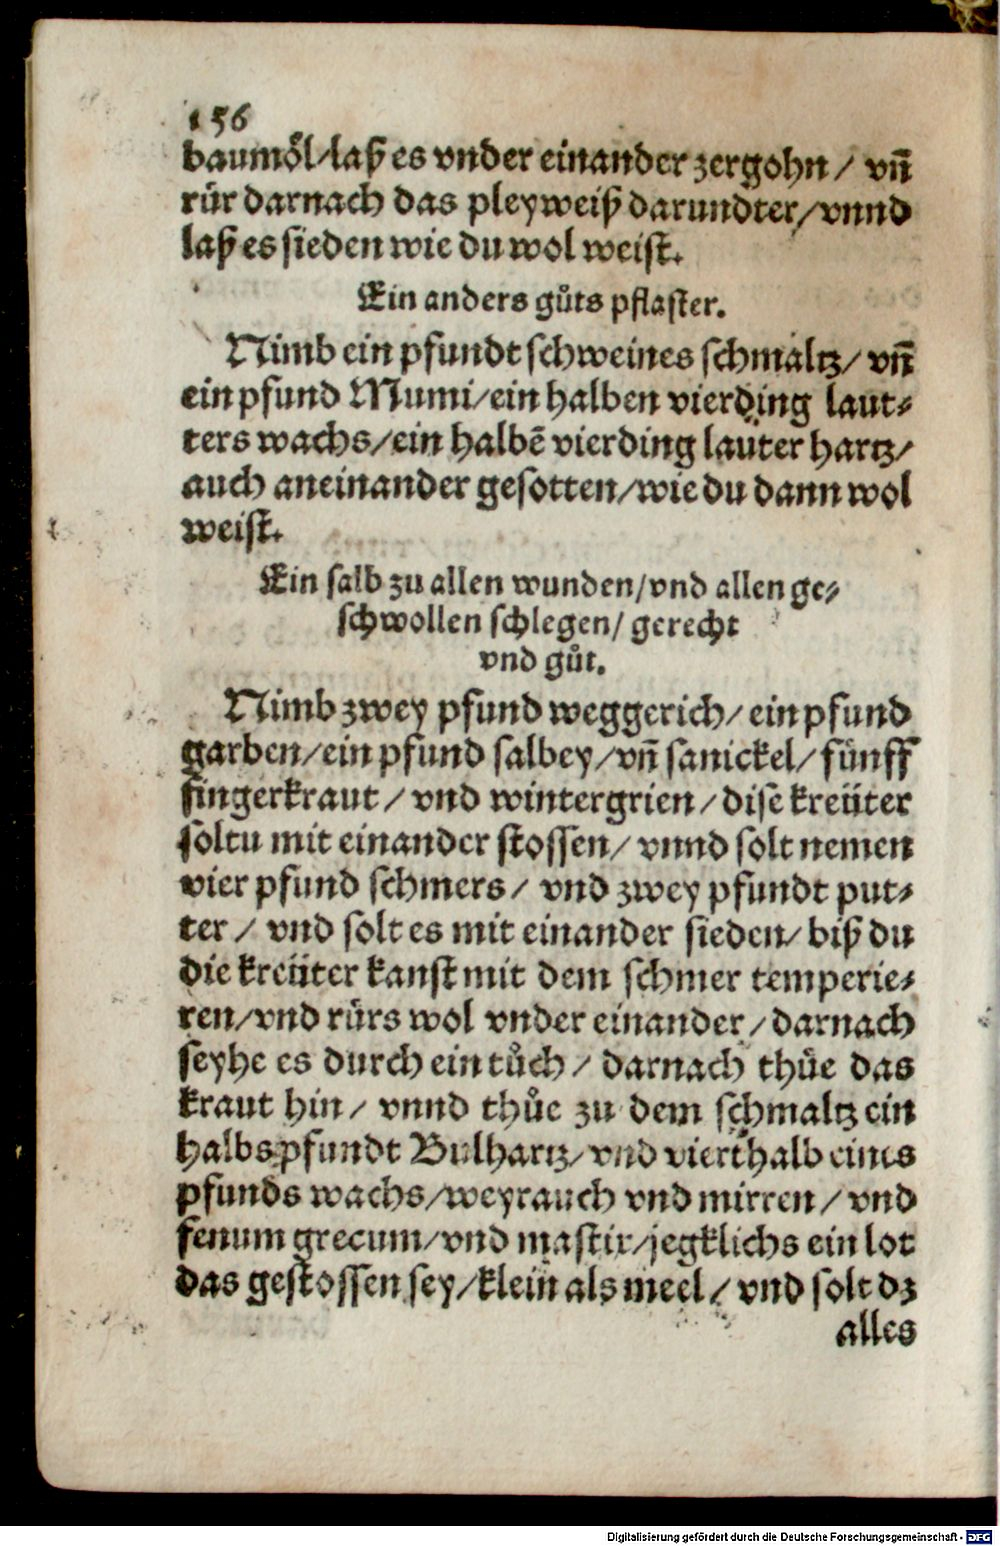 156
baumoͤl/laß es vnder einander zergohn/ vñ
ruͤr darnach das pleyweiß darundter/vnnd
laß es sieden wie du wol weist.
Ein anders guͦts pflaster.
Nimb ein pfundt schweines schmaltz/ vñ
ein pfund Mumi/ein halben vierding laut⸗
ters wachs/ein halbē vierding lauter hartz/
auch aneinander gesotten/wie du dann wol
weist.
Ein salb zu allen wunden/vnd allen ge⸗
schwollen schlegen/ gerecht
vnd guͦt.
Nimb zwey pfund weggerich/ ein pfund
garben/ein pfund salbey/vñ sanickel/ fuͤnff
fingerkraut/ vnd wintergrien/dise kreüter
soltu mit einander stossen/ vnnd solt nemen
vier pfund schmers/ vnd zwey pfundt put⸗
ter/ vnd solt es mit einander sieden/ biß du
die kreüter kanst mit dem schmer temperie⸗
ren/vnd ruͤrs wol vnder einander/darnach
seyhe es durch ein tuͦch/ darnach thuͤe das
kraut hin/ vnnd thuͦe zu dem schmaltz ein
halbs pfundt Bulhartz/vnd vierthalb eines
pfunds wachs/weyrauch vnd mirren/ vnd
fenum grecum/vnd mastix/jegklichs ein lot
das gestossen sey/klein als meel/ vnd solt dz
alles
Digitalisierung gefördert durch die Deutsche Forschungsgemeinschaft - DFG